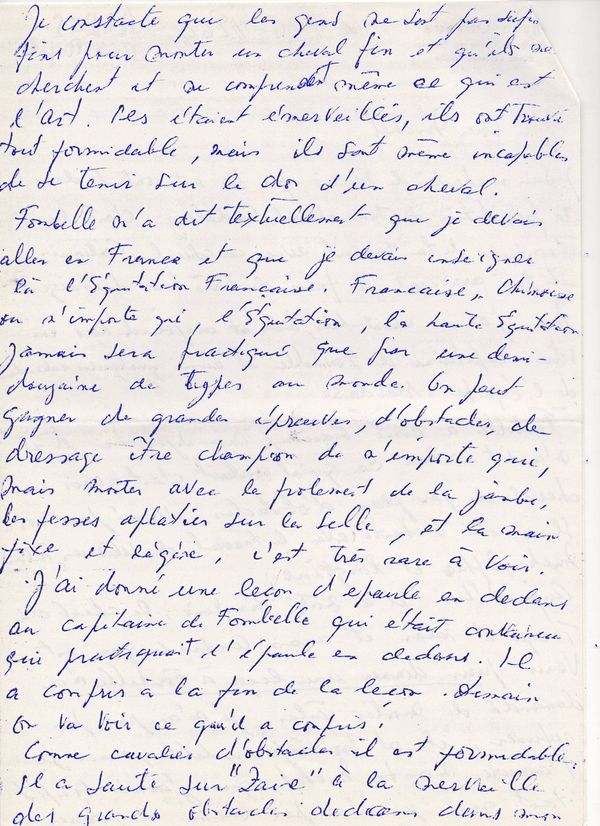 Je constate que les gens ne sont pas
fins pour monter un cheval fin et qu'ils ne
cherchent et ne comprendent même ce qui est
l'art. Ces étaient émerveillés, ils ont trouvé
tout formidable, mais ils sont même incapables
de se tenir sur le dos d'un cheval.
Fombelle m'a dit textuellement que je devais
aller en France et que je devais enseigner
là l'Equitation Française. Francaise, Chinoise
ou n'importe qui, l'Equitation, la haute Equitation
Jamais sera practiqué que par une demi-
douzaine de types au monde. On peut
gagner de grandes épreuves, d'obstacles, de
dressage être champion de n'importe qui,
mais monter avec le frolement de la jambe,
les fesses aplaties sur la selle, et la main
fixe et légère, c'est très rare à voir.
J'ai donné une leçon d'épaule en dedans
au capitaine de Fombelle qui était convaincu
qui practiquait l'épaule en dedans. Il
a compris à la fin de la leçon. Demain
on va voir ce qu'il a compris!
Comme cavalier d'obstacles il est formidable.
Il a sauté sur "Zaire" à la merveille
des grands obstacles dans mon